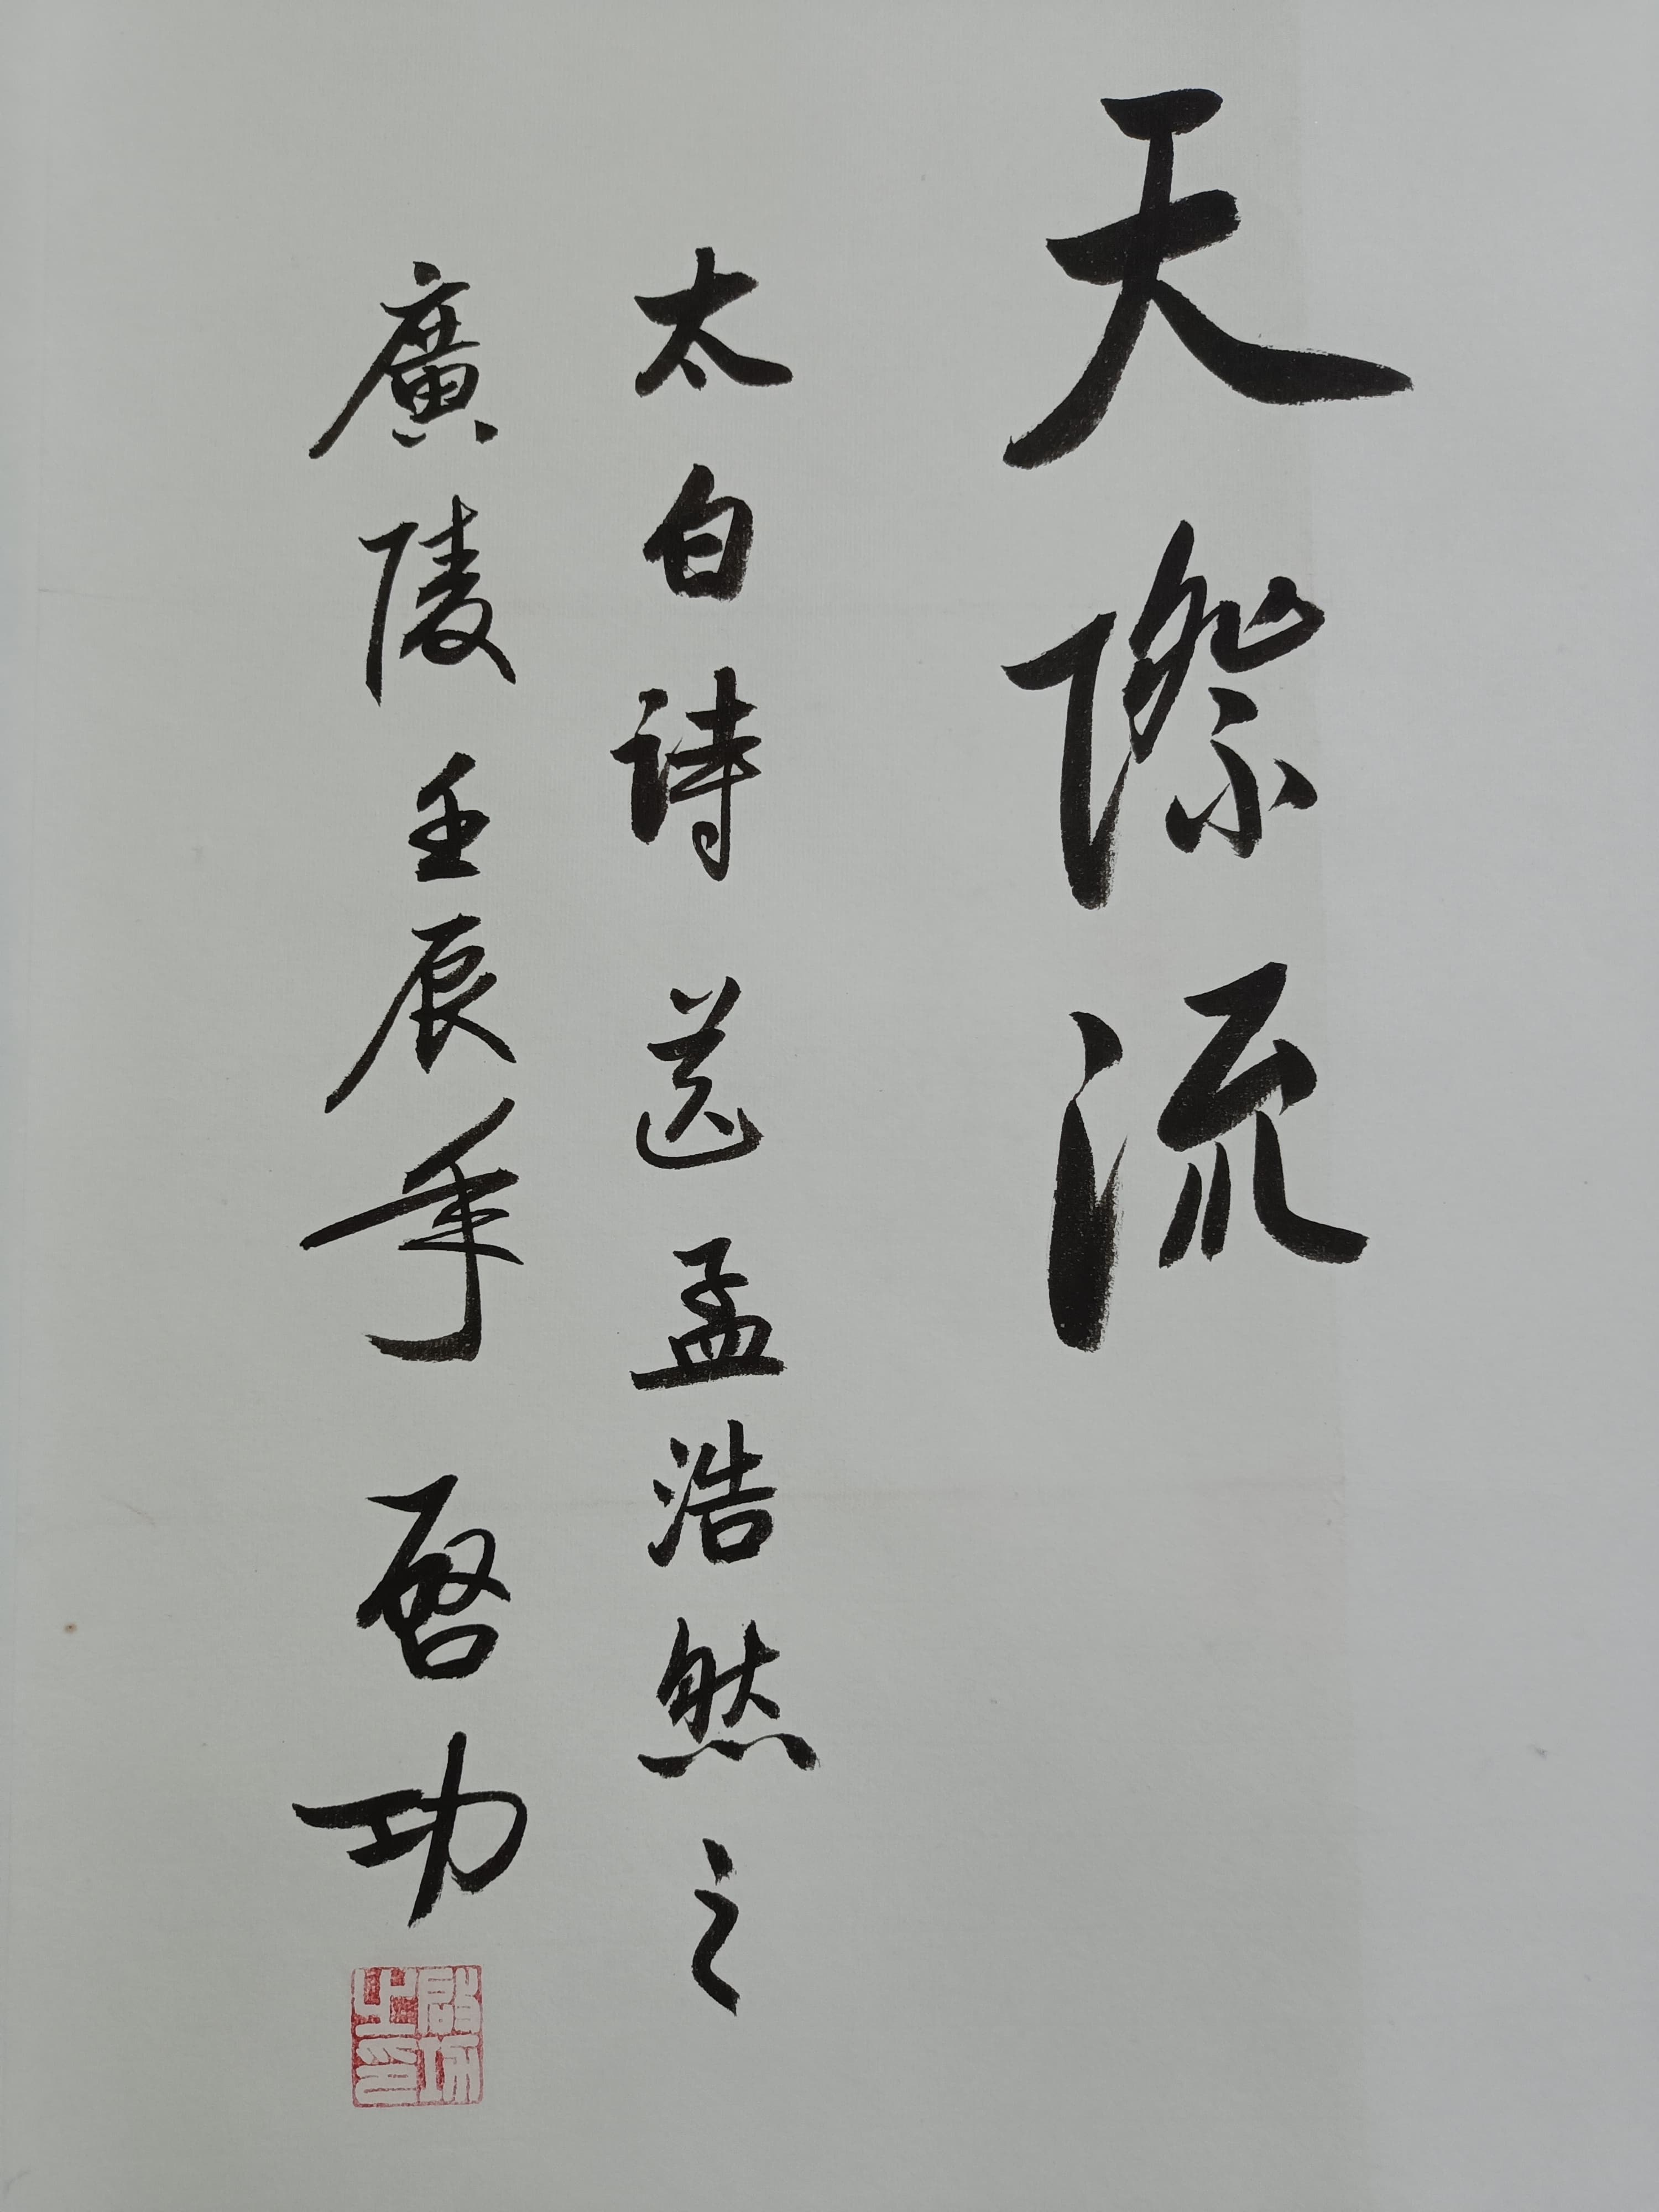 天際流
太白詩送孟浩然之
廣陵壬辰年啓功
啟功之印